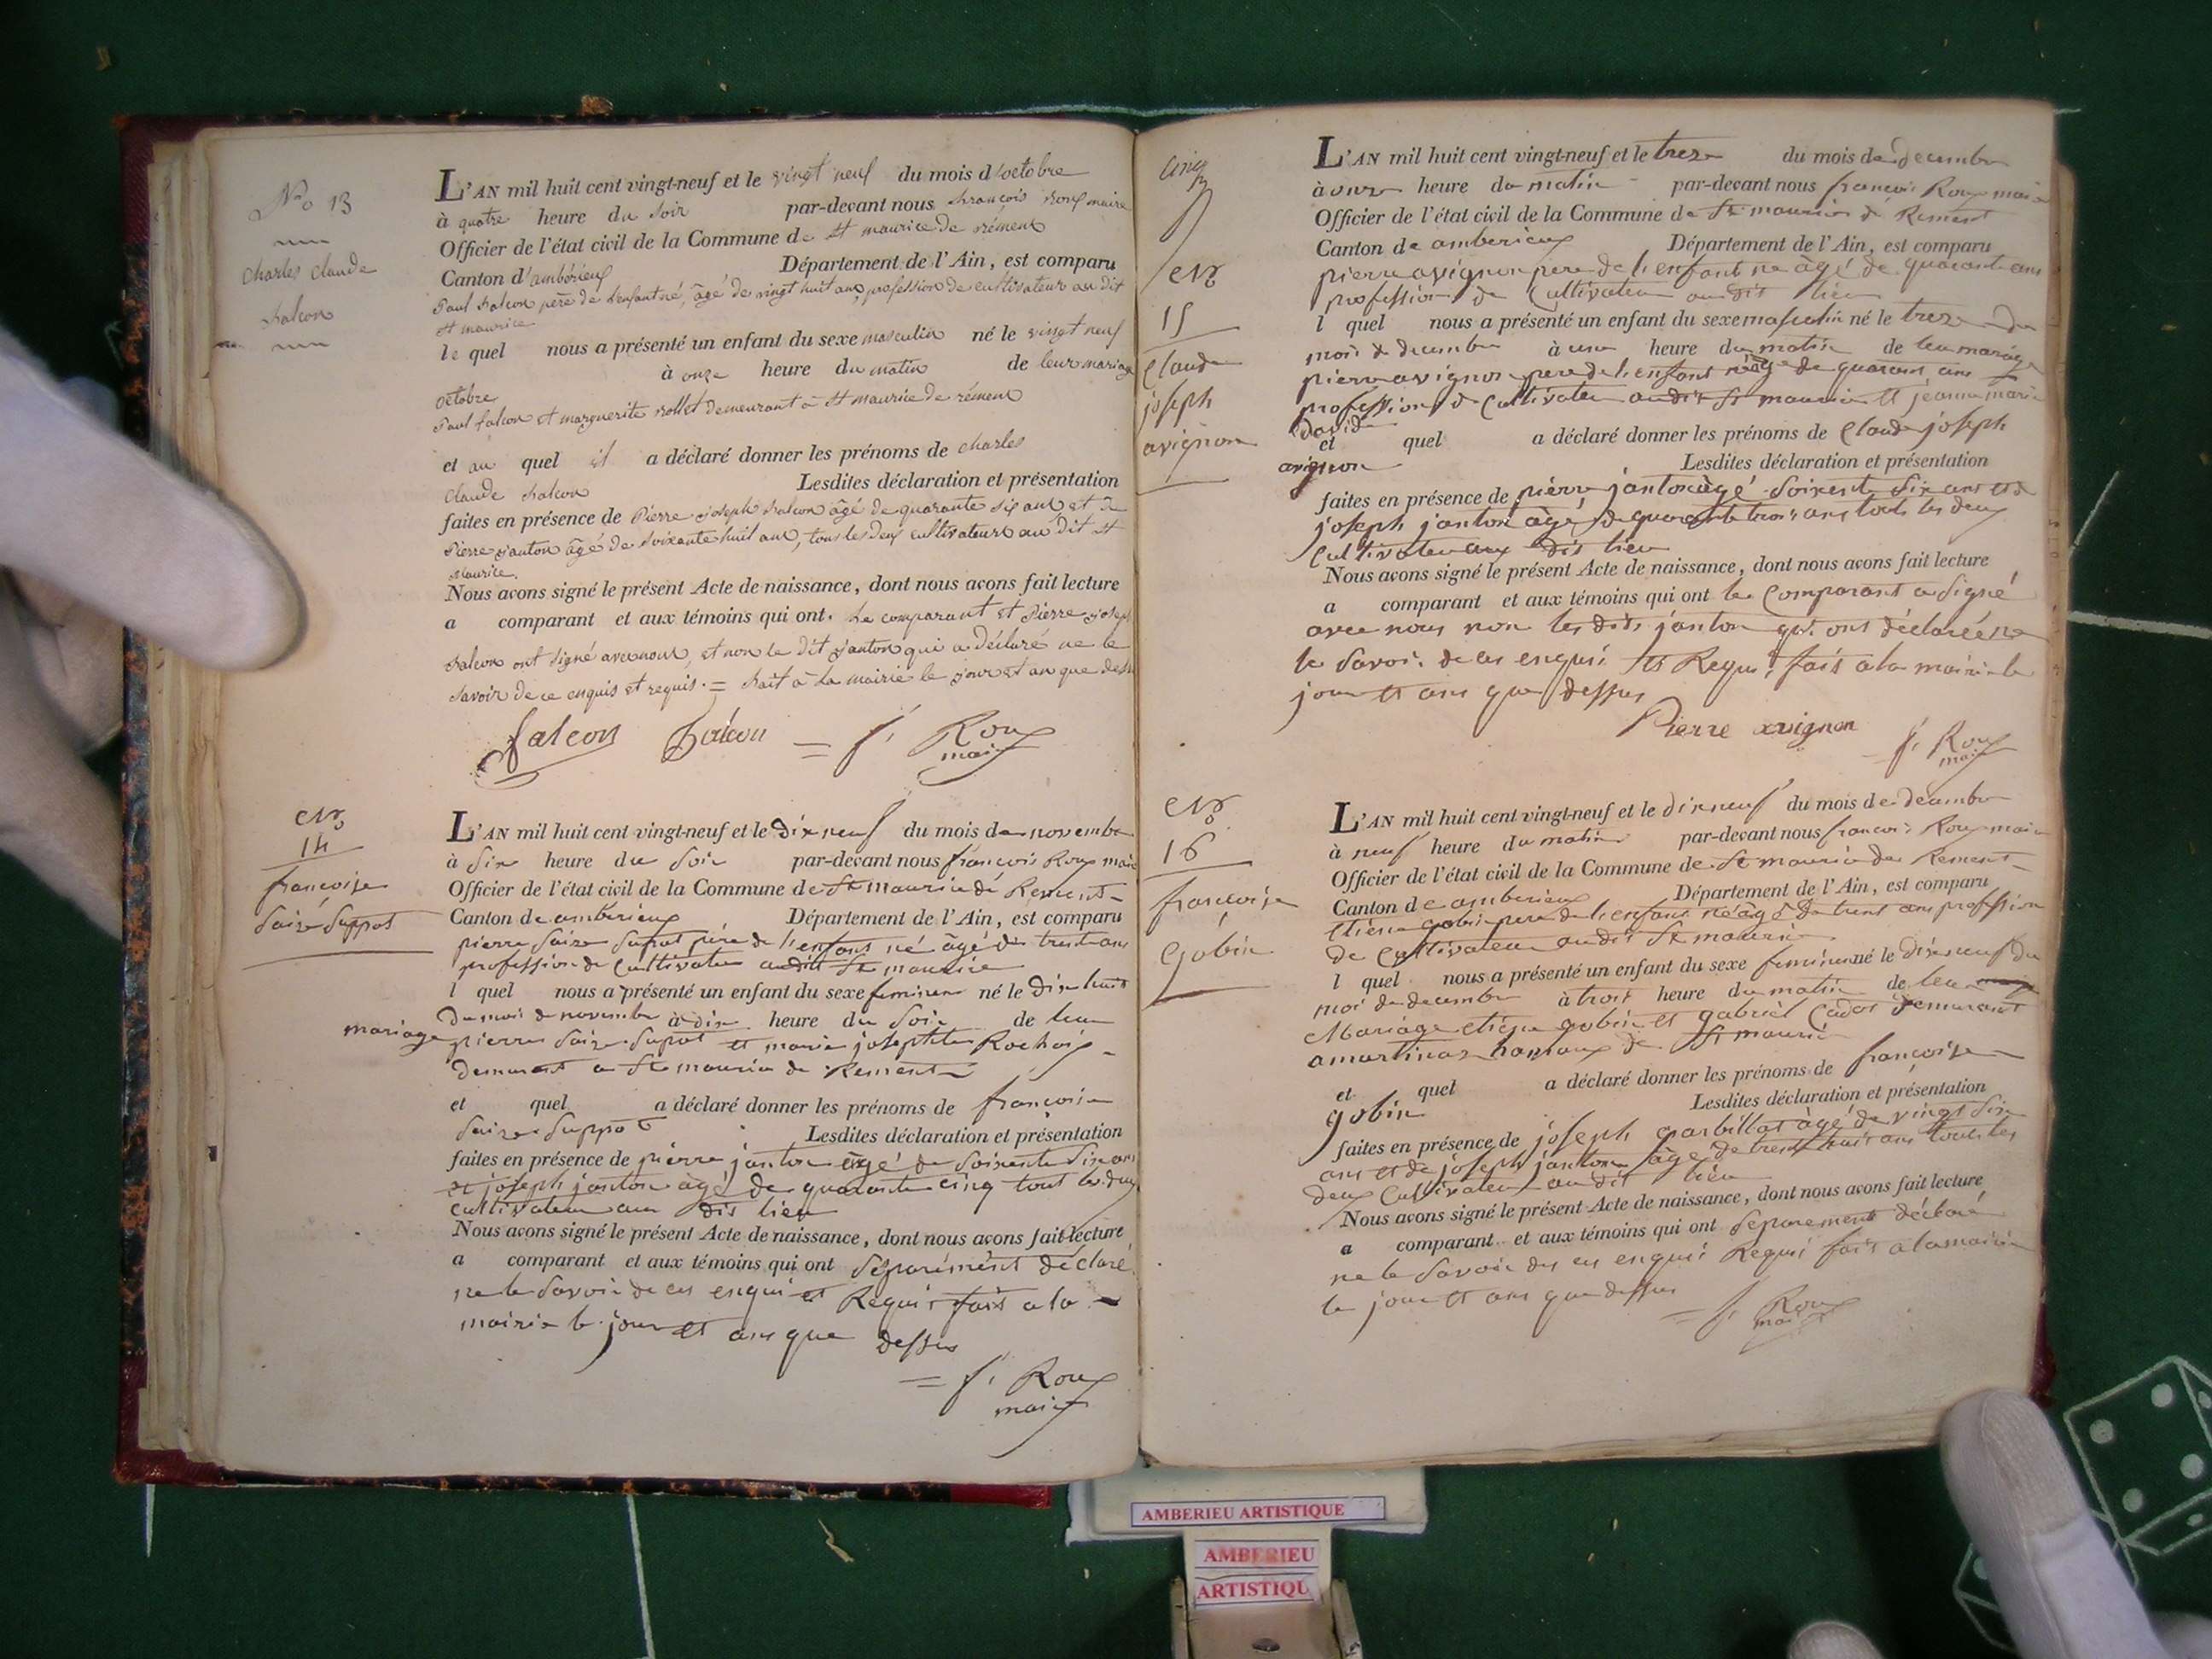 No 13
Charles Claude
falcon
L'AN mil huit cent vingt-neuf et le vingt neuf du mois d'octobre
à quatre heure du soir par-devant nous françois roux maire
Officier de l'état civil de la Commune de st maurice de rémens
Canton d'ambérieux Département de l'Ain, est comparu
Paul falcon père de l'enfant né, âgé de vingt huit ans, profession de cultivateur au dit
st maurice
le quel nous a présenté un enfant du sexe masculin né le vingt neuf
à onze heure du matin de leur mariage
octobre
Paul falcon et marguerite rollet demeurant à st maurice de rémens
et au quel il a déclaré donner les prénoms de charles
Claude falcon Lesdites déclaration et présentation
faites en présence de Pierre joseph falcon âgé de quarante six ans et de
Pierre janton âgé de soixante huit ans, tous les deux cultivateurs au dit st
Maurice.
Nous avons signé le présent Acte de naissance, dont nous avons fait lecture
a comparant et aux témoins qui ont. Le comparant et Pierre joseph
falcon ont signé avec nous, et non le dit janton qui a déclaré ne le
savoir de ce enquis et requis. = fait à la mairie le jour et an que dessus
falcon falcon = f. Roux
maire
No
14
françoise
Saire Suppot
L'AN mil huit cent vingt-neuf et le dix neuf du mois de novembre
à six heure du soir par-devant nous françois Roux maire
Officier de l'état civil de la Commune de St maurice de Rement
Canton de amberieux Département de l'Ain, est comparu
pierre Saire Supot père de l'enfant né âgé de trente ans
profession de Cultivateur audit St maurice
l quel nous a présenté un enfant du sexe feminin né le dix huit
du mois de novembre à dix heure du soir de leur
mariage pierre Saire Supot et marie josephte Rochoix
demurant a St maurice de Rement
et quel a déclaré donner les prénoms de françoise
Saire Suppot Lesdites déclaration et présentation
faites en présence de pierre janton âgé de soixente dix ans
et joseph janton âgé de quarante cinq tout les deux
cultivateur au dit lieu
Nous avons signé le présent Acte de naissance, dont nous avons fait lecture
a comparant et aux témoins qui ont séparément déclaré
ne le savoir de ces enqui et Requis fait a la
mairie le jour et ans que dessus
= f. Roux
maire
cinq
No
15
Claude
joseph
avignon
L'AN mil huit cent vingt-neuf et le treze du mois de decembre
à onze heure du matin par-devant nous françois Roux maire
Officier de l'état civil de la Commune de St maurice de Rement
Canton de amberieux Département de l'Ain, est comparu
pierre avignon pere de l'enfant né âgé de quarante ans
profession de Cultivateur au dit lieu
l quel nous a présenté un enfant du sexe masculin né le treze du
mois de decembre à une heure du matin de leu mariage
pierre avignon pere de l'enfant né âgé de quarant ans
profession de Cultivateur audit St maurice et jeanne marie
david
et quel a déclaré donner les prénoms de Claude joseph
avignon Lesdites déclaration et présentation
faites en présence de pierre janton âgé soixente dix ans et de
joseph janton âgé de quarante trois ans touts les deux
Cultivateur aux dit lieu
Nous avons signé le présent Acte de naissance, dont nous avons fait lecture
a comparant et aux témoins qui ont le Comparant a signé
avec nous non les dits janton qui ont déclarée ne
le savoir de ces enqui et Requi fait a la mairie le
jour et ans que dessus
Pierre avignon
f. Roux
maire
No
16
françoise
Gobin
L'AN mil huit cent vingt-neuf et le dix neuf du mois de decembre
à neuf heure du matin par-devant nous françois Roux maire
Officier de l'état civil de la Commune de St maurice de Rement
Canton de amberieux Département de l'Ain, est comparu
etiene gobin pere de l'enfant né âgé de trent ans profession
de Cultivateur au dit St maurice
l quel nous a présenté un enfant du sexe feminin né le dix neuf du
moi de decembre à trois heure du matin de leur
Mariage etiene gobin et gabriel Cadot demurant
a martinaz hamaux de St maurice
et quel a déclaré donner les prénoms de françoise
gobin Lesdites déclaration et présentation
faites en présence de joseph garbillat âgé de vingt six
ans et de joseph janton âgé de trent huit ans tout les
deux Cultivateur au dit lieu
Nous avons signé le présent Acte de naissance, dont nous avons fait lecture
a comparant et aux témoins qui ont séparement déclaré
ne le savoir des ces enqui Requi fait a la mairie
le jour et ans que dessus
= f. Roux
maire
AMBERIEU ARTISTIQUE
AMBERIEU
ARTISTIQU